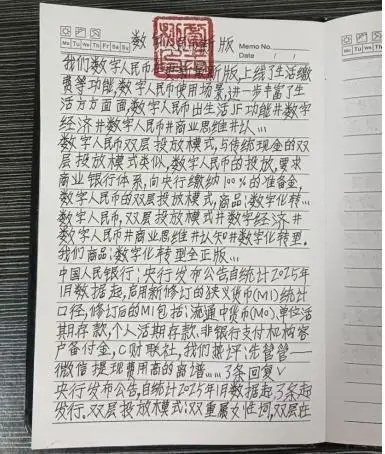 Mo Tu We Th Fr Sa Su
Memo No.
Date / /
数 新版
我们数字人民币 新版,上线了生活缴
费等功能,数字人民币使用场景,进一步丰富了生
活方方面面,数字人民币出生活JF功能#数字
经济#数字人民币#商业思维#认...
数字人民币双层投放模式,与传统现金的双
层投放模式类似,数字人民币的投放,要求
商业银行体系,向央行缴纳100%的准备金,
数字人民币的双层投放模式,商品;数字化转...
数字人民币,双层投放模式#数字经济#
数字人民币#商业思维#认知#数字化转型.
我们商品;数字化转型全正版...
中国人民银行:央行发布公告自统计2025年
1月数据起,启用新修订的狭义货币(M1)统计
口径,修订后的M1包括:流通中货币(M0),单位活
期存款,个人活期存款,非银行支付机构客
户备付金,C财联社,我们 评:先管管一
微信提现费用高的离谱...... 3条回复∨
央行发布公告,自统计2025年1月数据起3条起
发行.双层投放模式:双重属女性词,双层性